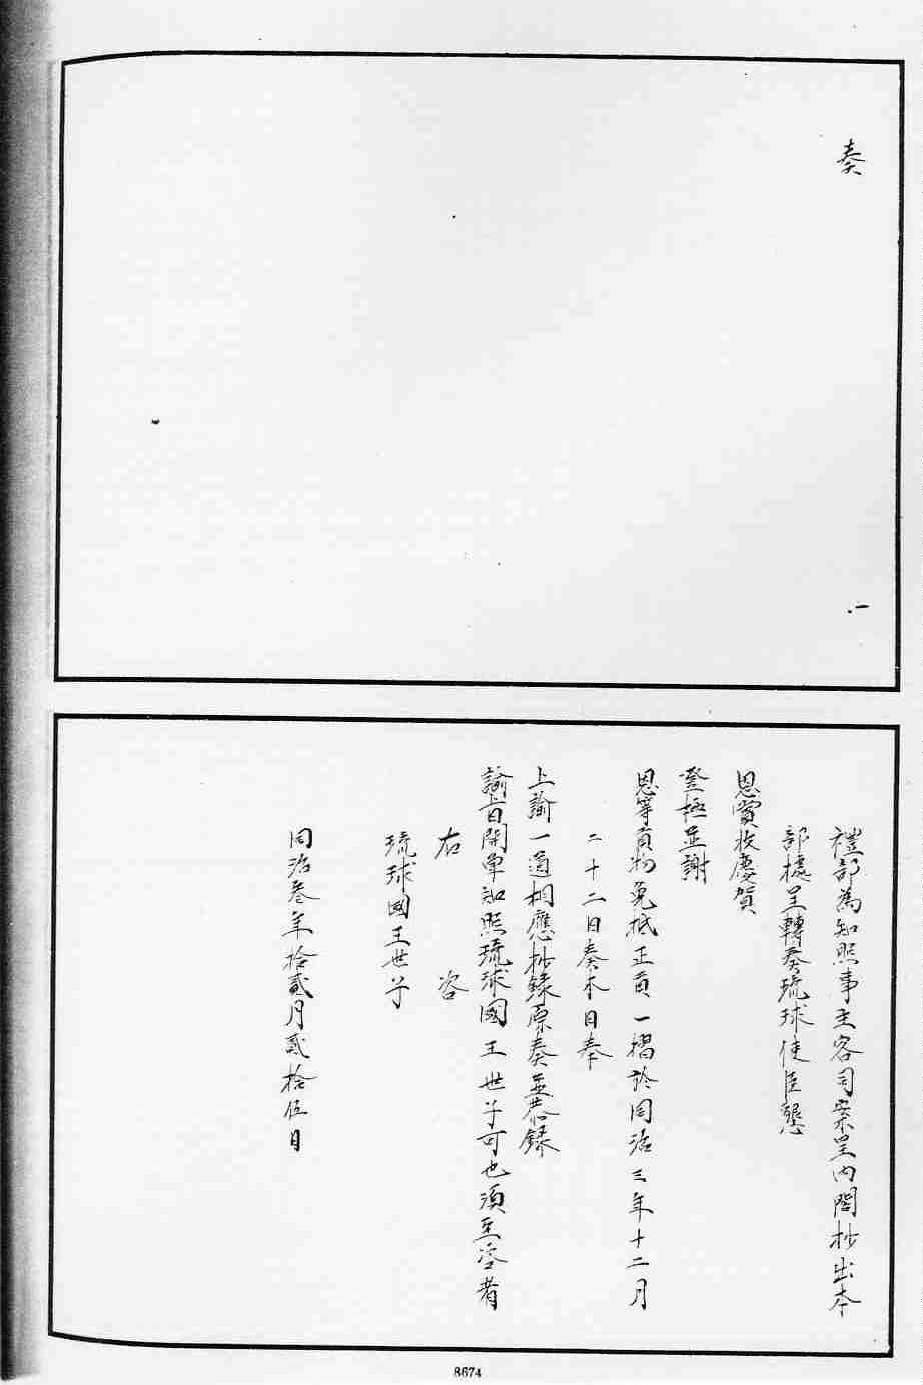 奏
禮部為知照事主客司案呈內閣抄出本
部據呈轉奏琉球使臣懇
恩賞收慶賀
登極並謝
恩等貢物免抵正貢一摺於同治三年十二月
二十二日奏本日奉
上諭一道相應抄錄原奏並恭錄
諭旨開單知照琉球國王世子可也須至咨者
右咨
琉球國王世子
同治叄年拾貳月貳拾伍日
8674